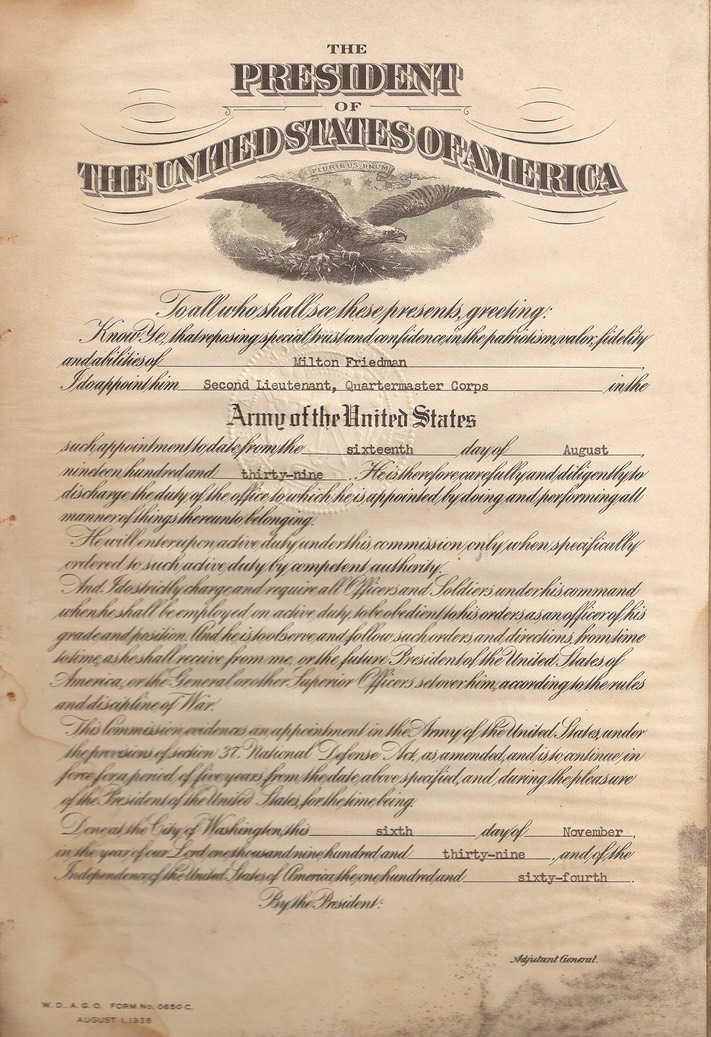 THE
PRESIDENT
OF
THE UNITED STATES OF AMERICA
E PLURIBUS UNUM
To all who shall see these presents, greeting:
Know Ye, that reposing special trust and confidence in the patriotism, valor, fidelity
and abilities of Milton Friedman,
I do appoint him Second Lieutenant, Quartermaster Corps in the
Army of the United States
such appointment to date from the sixteenth day of August,
nineteen hundred and thirty-nine. He is therefore carefully and diligently to
discharge the duty of the office to which he is appointed, by doing and performing all
manner of things thereunto belonging.
He will enter upon active duty under this commission only when specifically
ordered to such active duty by competent authority.
And I do strictly charge and require all Officers and Soldiers under his command
when he shall be employed on active duty to be obedient to his orders as an officer of his
grade and position. And he is to observe and follow such orders and directions, from time
to time, as he shall receive from me, or the future President of the United States of
America, or the General or other Superior Officers set over him, according to the rules
and discipline of War.
This Commission evidences an appointment in the Army of the United States, under
the provisions of section 37, National Defense Act, as amended, and is to continue in
force for a period of five years from the date above specified, and during the pleasure
of the President of the United States, for the time being.
Done at the City of Washington, this sixth day of November,
in the year of our Lord one thousand nine hundred and thirty-nine, and of the
Independence of the United States of America the one hundred and sixty-fourth.
By the President:
Adjutant General.
W. D., A. G. O. FORM No. 0650 C.
AUGUST 1, 1938